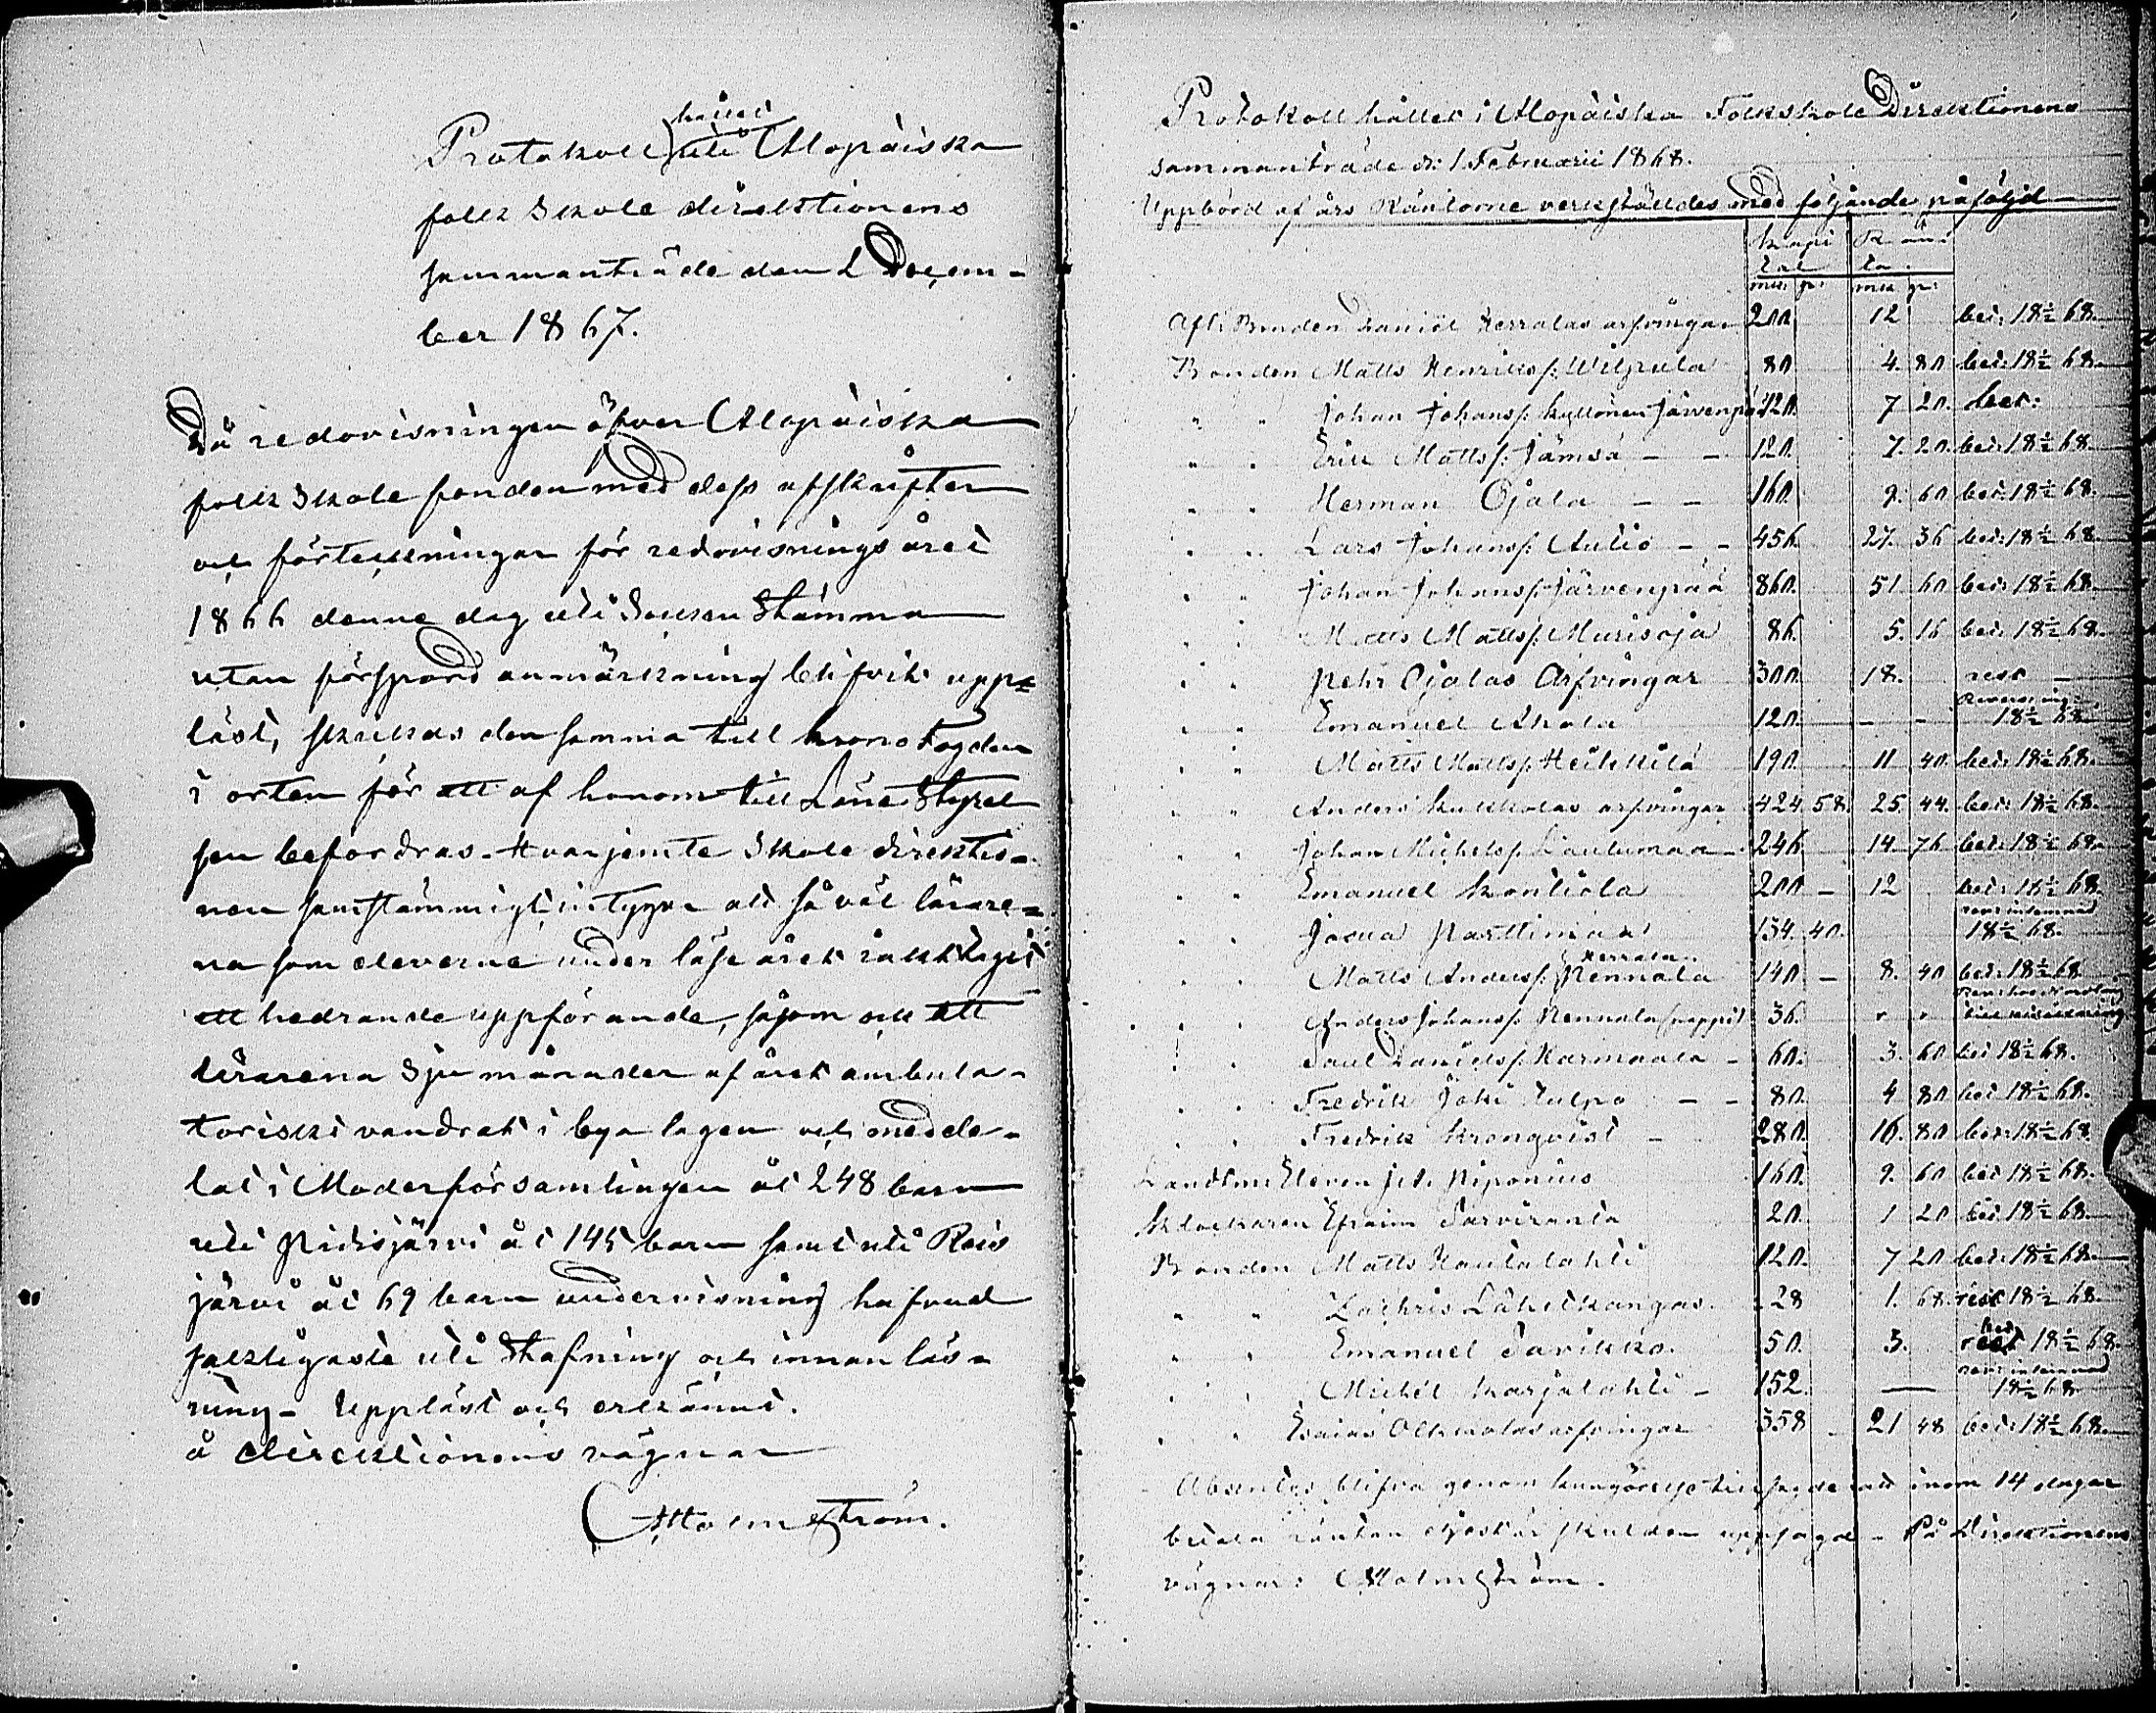 Protokoll hållet uti Alopaiska
folk Skole direktionens
sammanträde den 2 Decem-
ber 1867.
Då redovisningen öfver Alopaiska
folk Skole fonden med dess afskrifter
och förteckningar för redovisnings året
1866 denne dag uti Socken Stämma
utan förspord anmärkning blifvit upp=
läst, skickas den samma till kronofogden
i orten för att af honom till Läne Styrel
sen befordras. Hvarjemte Skole direktio-
nen samstämmigt intygar att så väl lärare-
na som eleverne under läse året iakttagit
ett hedrande uppförande, såsom ock att
lärarena sju månader af året ambula-
toriskt vandrat i bya lagen och medde-
lat i Moderförsamlingen åt 248 barn
uti Pidisjärvi åt 145 barn samt uti Reis
järvi åt 69 barn undervisning hufvud
sakligaste uti Stafning och innan läs-
ning. Uppläst och erkändt.
å direktionens vägnar
Malmström.
Protokoll hållet i Alopaiska Folkskole Direktionens
sammanträde d: 1 Februarii 1868.
Uppbörd af års Räntorne verkställdes med följande påföljd
kapi tal Rän ta
mk p: mk p:
Afl: Bonden Daniel Kerralas arfvingar 200 12 bet: 18½68.
Bonden Matts Henrikss: Wilpula 80 4. 80 bet: 18½68.
" " Johan Johanss: Kyllönen Järvenpää 120. 7 20. bet:
" " Erik Mattss: Jämsä - - 120. 7. 20. bet: 18½68.
" " Herman Ojala - - 160. 9. 60 bet: 18½68.
" " Lars Johanss: Autio - - 456. 27. 36 bet: 18½68.
" " Johan Johanss: Järvenpää 860. 51 60 bet: 18½68.
" " Matts Mattss: Murisoja 86. 5. 16 bet: 18½68.
" " Pehr Ojalas Arfvingar 300. 18. rest
" " Emanuel Ahola 120. - - 18½68
" " Matts Mattss: Heikkilä 190. 11 40. bet: 18½68.
" " Anders Kukkolas arfvingar 424. 58. 25. 44. bet: 18½68.
" " Johan Michelss: Lautumaa - 246 14 76 bet: 18½68.
" " Emanuel Kontiola 200 - 12 bet: 18½68.
" " Josua Parttimaa 134. 40. 18½68.
" " Matts Anderss: Pennala Kerrala 140 - 8. 40 bet: 18½68
" " Anders Johanss: Pennala 36. " "
" " Paul Daniels: Karmaala - 60. 3. 60 bet 18½68.
" " Fredrik Joki Kulpo - - 80. 4 80 bet 18½68.
" " Fredrik Kronqvist - 280. 16. 80 bet: 18½68
Landtm: Eleven Joh: Piponius 160. 9. 60 bet 18½68.
Klockaren Efraim Tarviranta 20. 1 20 bet 18½68.
Bonden Matts Hautalahti 120. 7 20 bet: 18½68.
" " Zachris Lähekangas. 28 1. 68. rest 18½68.
" " Emanuel Savikko. 50. 3. rest bet 18½68.
" " Michel Karjalahti - 152. — 18½68
" " Esaias Olkinolas arfvingar 358 - 21 48 bet: 18½68.
Absentes blifva genom kungörelse tillsagde att inom 14 dagar
betala räntan eljest är skulden uppsagd - På Direktionens
vägnar: Malmström.